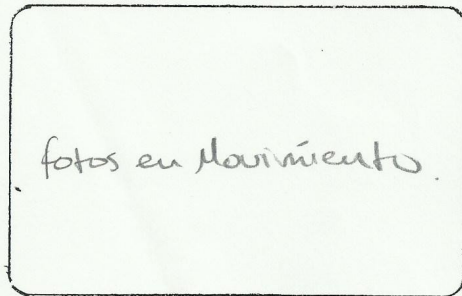 fotos en Movimiento.